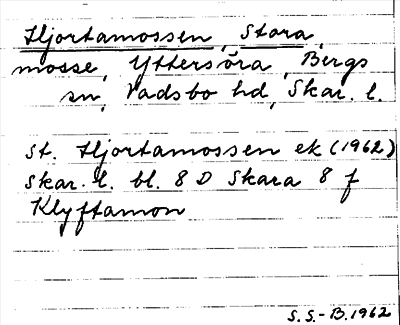 Hjortamossen, Stora,
mosse, Yttersöra, Bergs
sn, Vadsbo hd, Skar. l.
St. Hjortamossen ek (1962)
Skar. l. bl. 8 D Skara 8 f
Klyftamon
S. S.-B. 1962